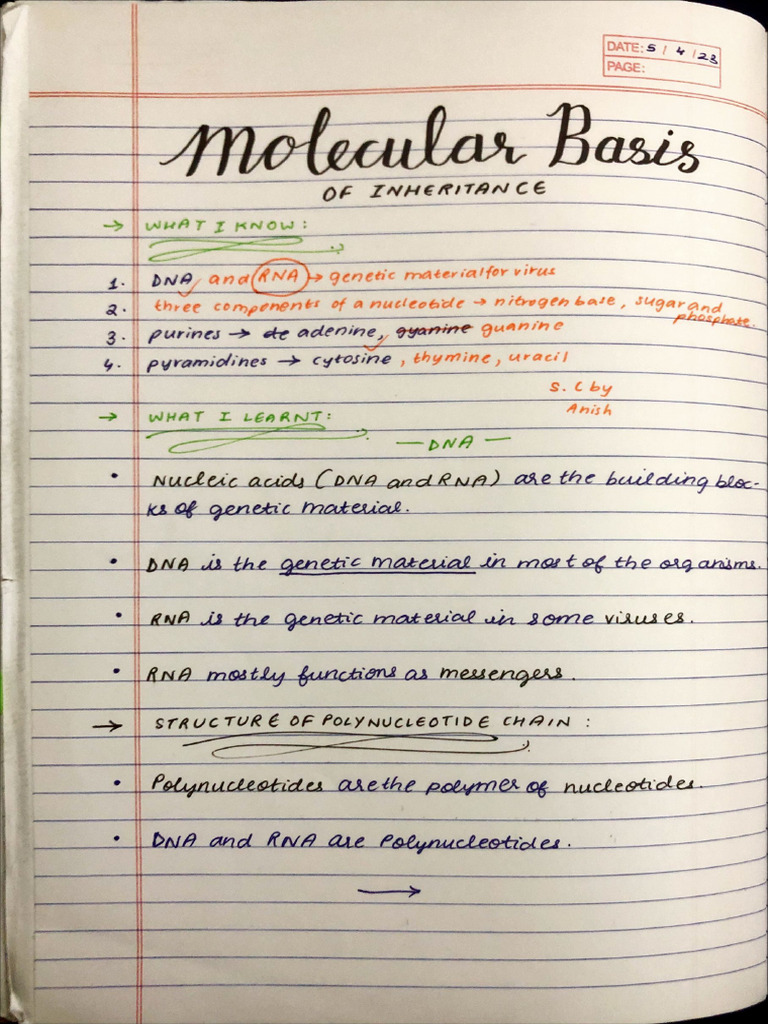 DATE: 5 / 4 / 23
PAGE:
Molecular Basis
OF INHERITANCE
→ WHAT I KNOW:
1. DNA and RNA → genetic material for virus
2. three components of a nucleotide → nitrogen base, sugar and
phosphate.
3. purines → de adenine, gyanine guanine
4. pyramidines → cytosine, thymine, uracil
S. C by
Anish
→ WHAT I LEARNT:
— DNA —
• Nucleic acids (DNA and RNA) are the building bloc-
ks of genetic material.
• DNA is the genetic material in most of the organisms.
• RNA is the genetic material in some viruses.
• RNA mostly functions as messengers.
→ STRUCTURE OF POLYNUCLEOTIDE CHAIN :
• Polynucleotides are the polymer of nucleotides.
• DNA and RNA are Polynucleotides.
→